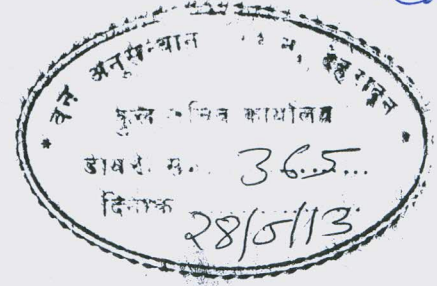 वन अनुसन्धान देहरादून
सचिव कार्यालय
डायरी सं. 365
दिनांक 28/5/13